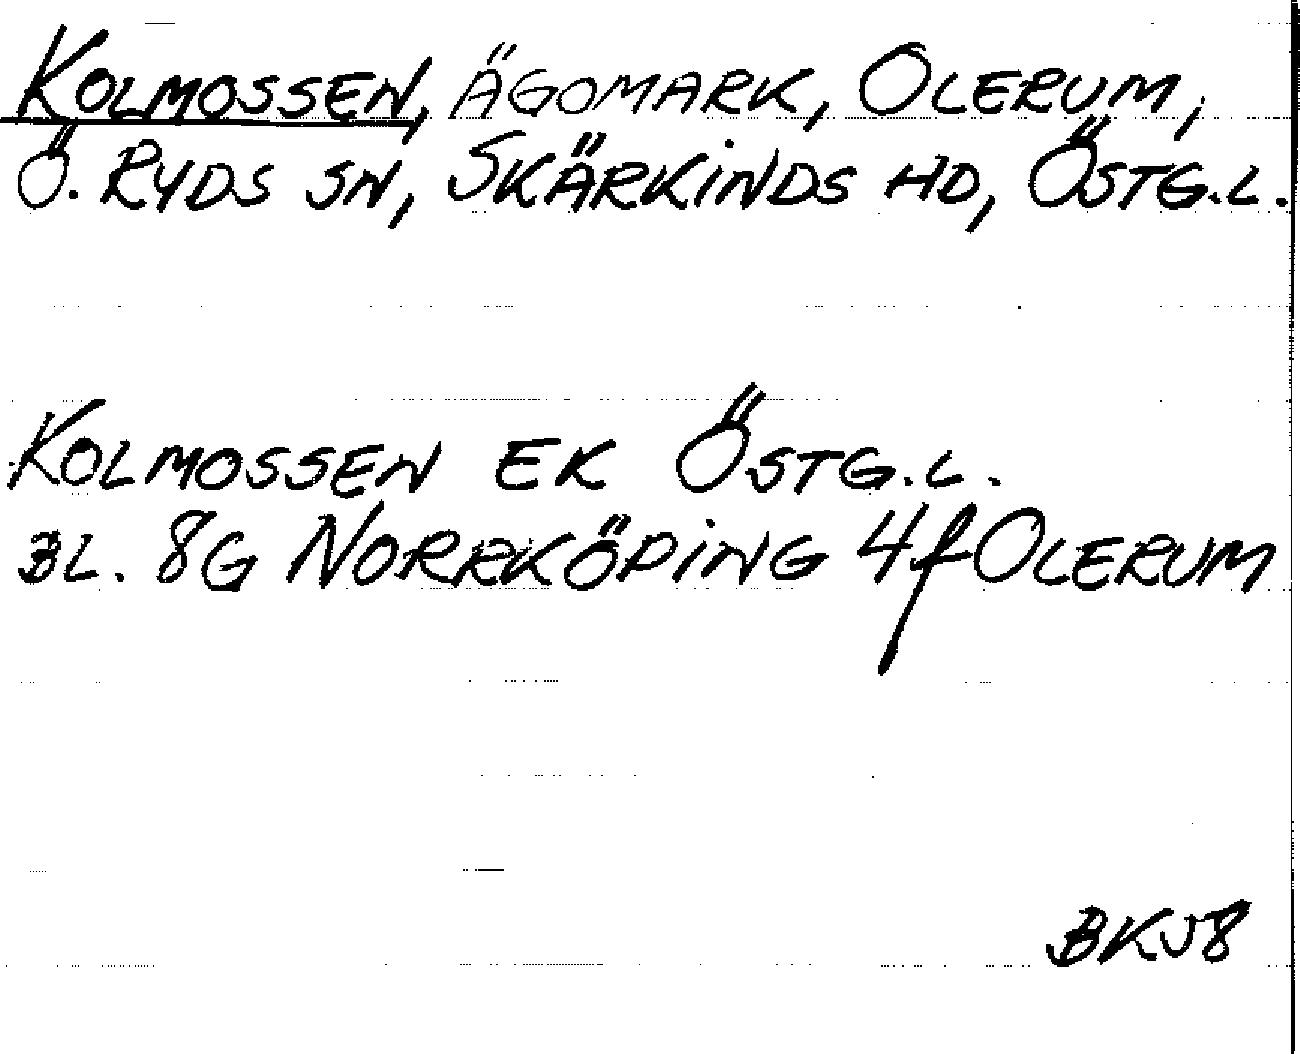 KOLMOSSEN, ÄGOMARK, OLERUM,
Ö. RYDS SN, SKÄRKINDS HD, ÖSTG.L.
KOLMOSSEN EK ÖSTG.L.
BL. 8G NORRKÖPING 4f OLERUM
BKJ8